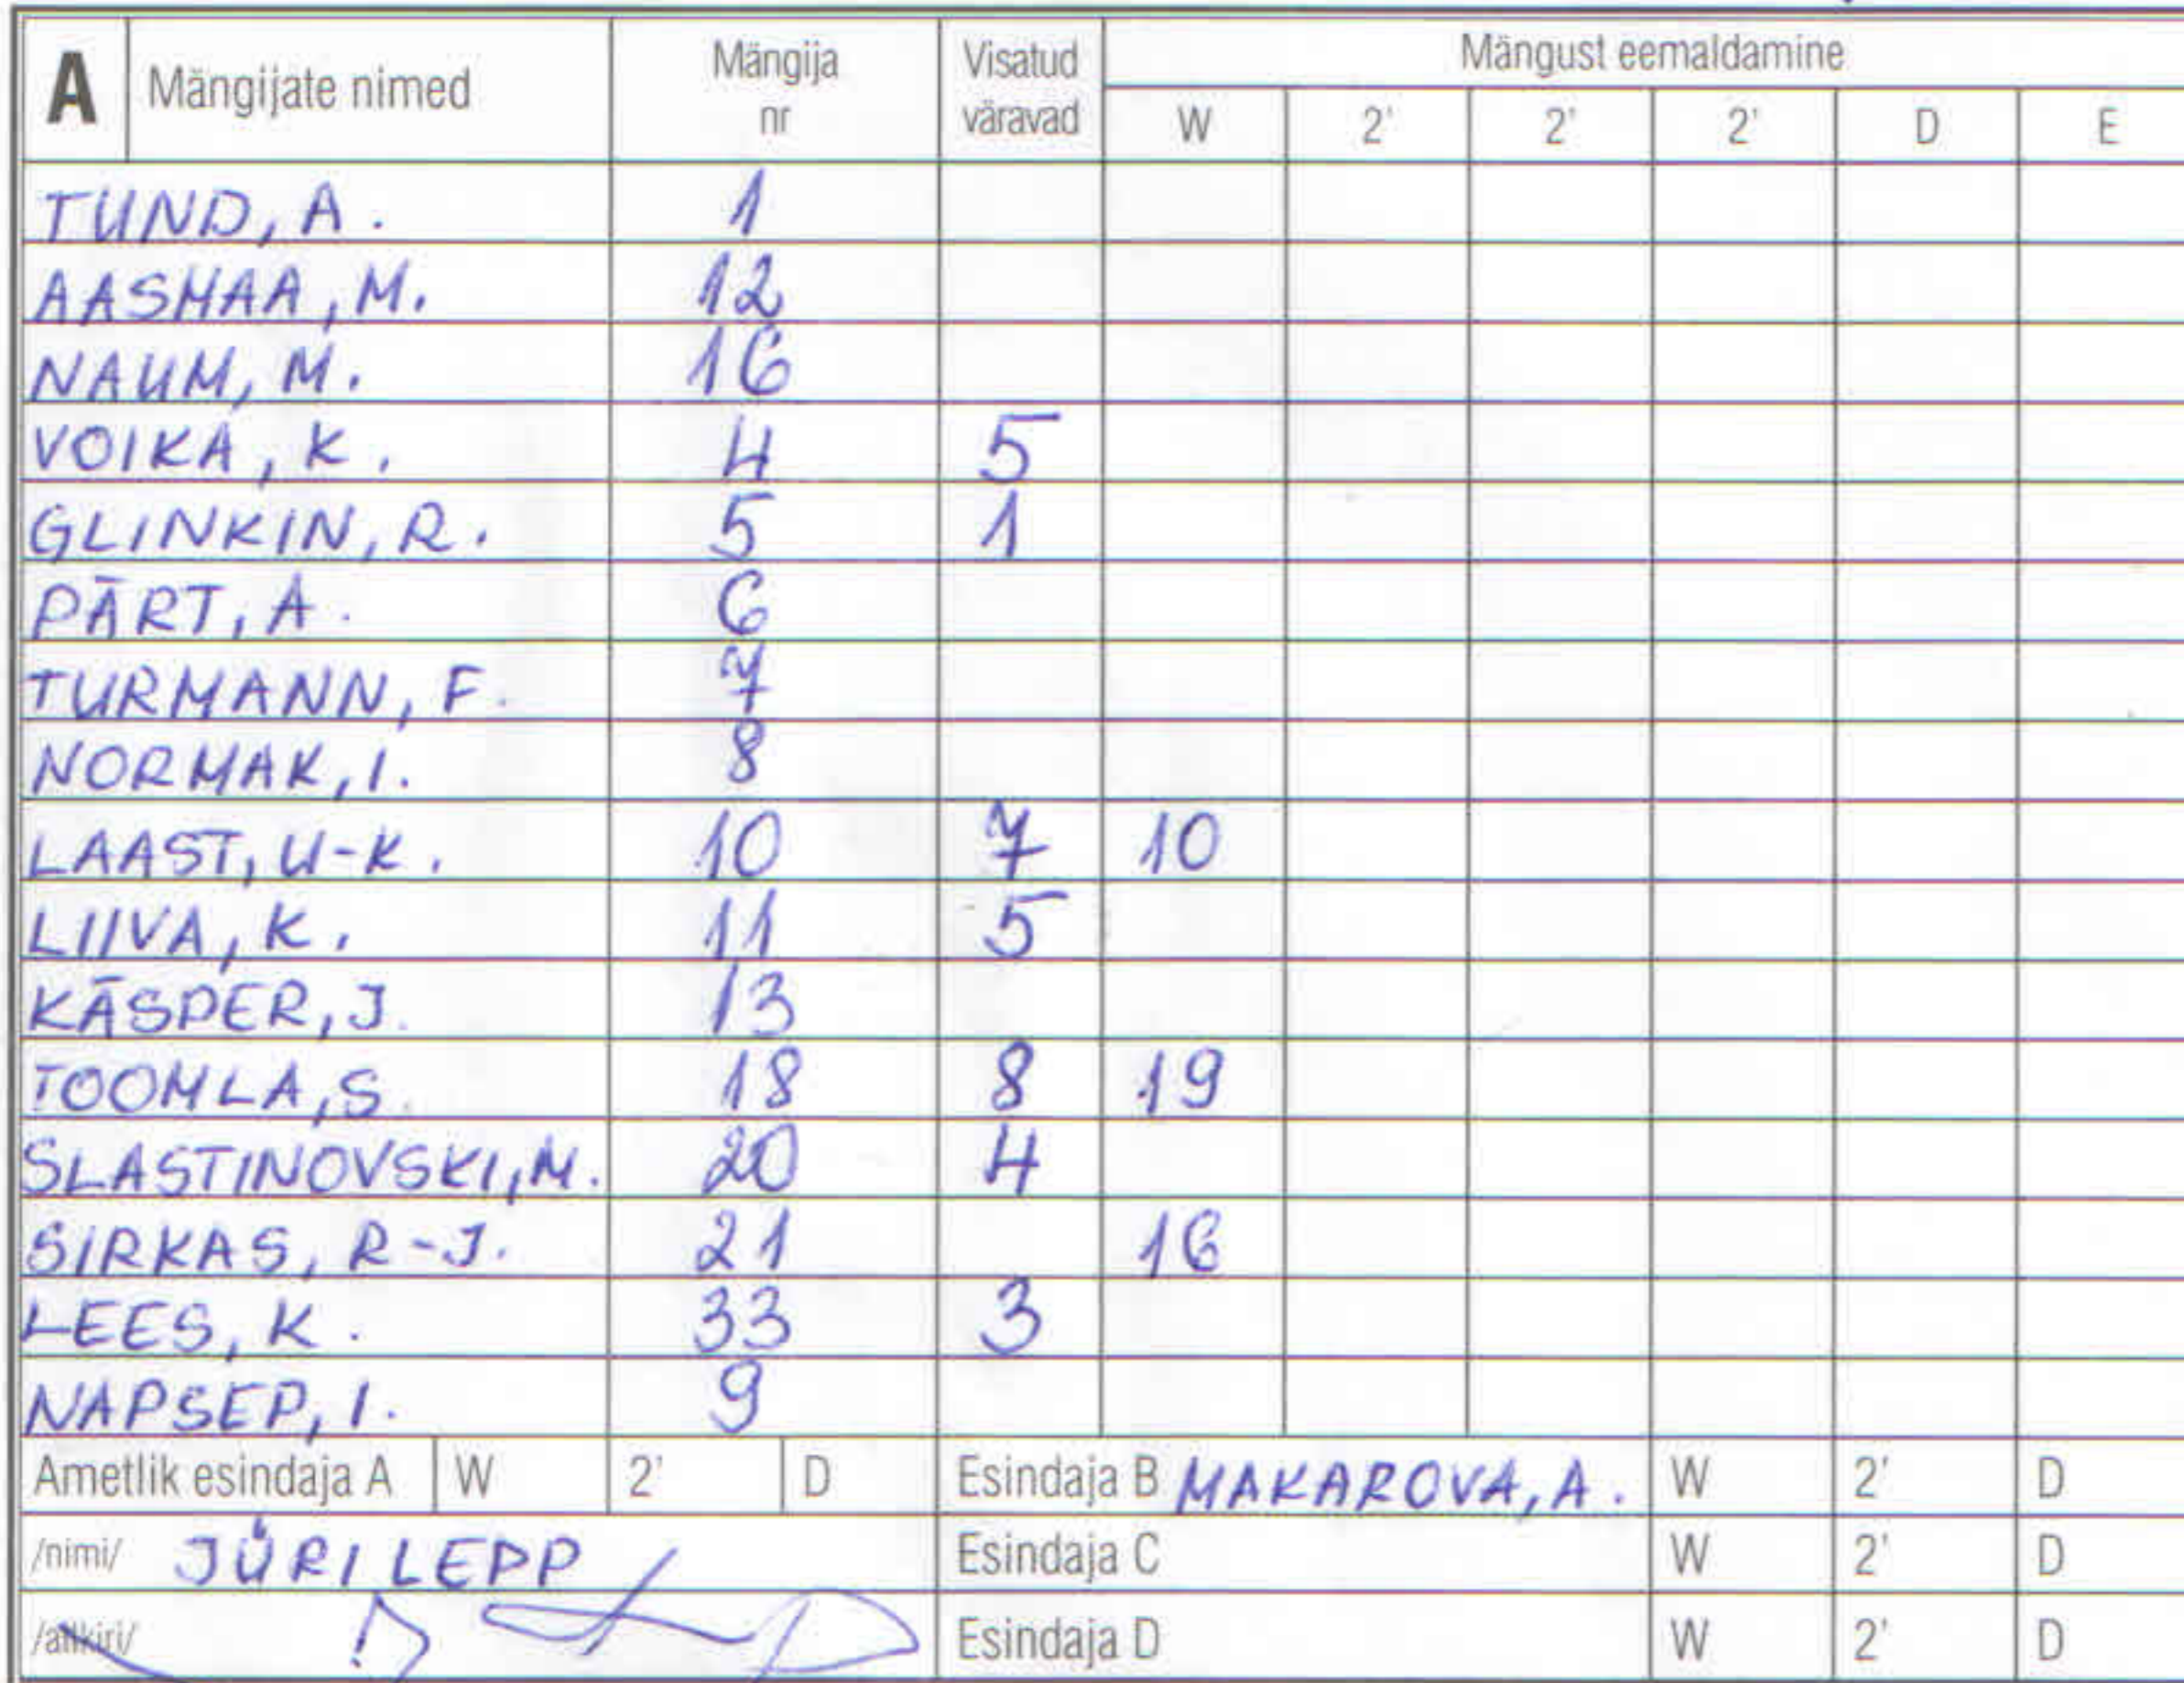 A Mängijate nimed Mängija nr Visatud väravad Mängust eemaldamine
W 2' 2' 2' D E
TUND, A. 1
AASMAA, M. 12
NAUM, M. 16
VOIKA, K. 4 5
GLINKIN, R. 5 1
PÄRT, A. 6
TURMANN, F. 7
NORMAK, I. 8
LAAST, U-K. 10 7 10
LIIVA, K. 11 5
KÄSPER, J. 13
TOOMLA, S. 18 8 19
SLASTINOVSKI, M. 20 4
SIRKAS, R-J. 21 16
LEES, K. 33 3
NAPSEP, I. 9
Ametlik esindaja A W 2' D Esindaja B MAKAROVA, A. W 2' D
/nimi/ JÜRI LEPP Esindaja C W 2' D
/allkiri/ Esindaja D W 2' D